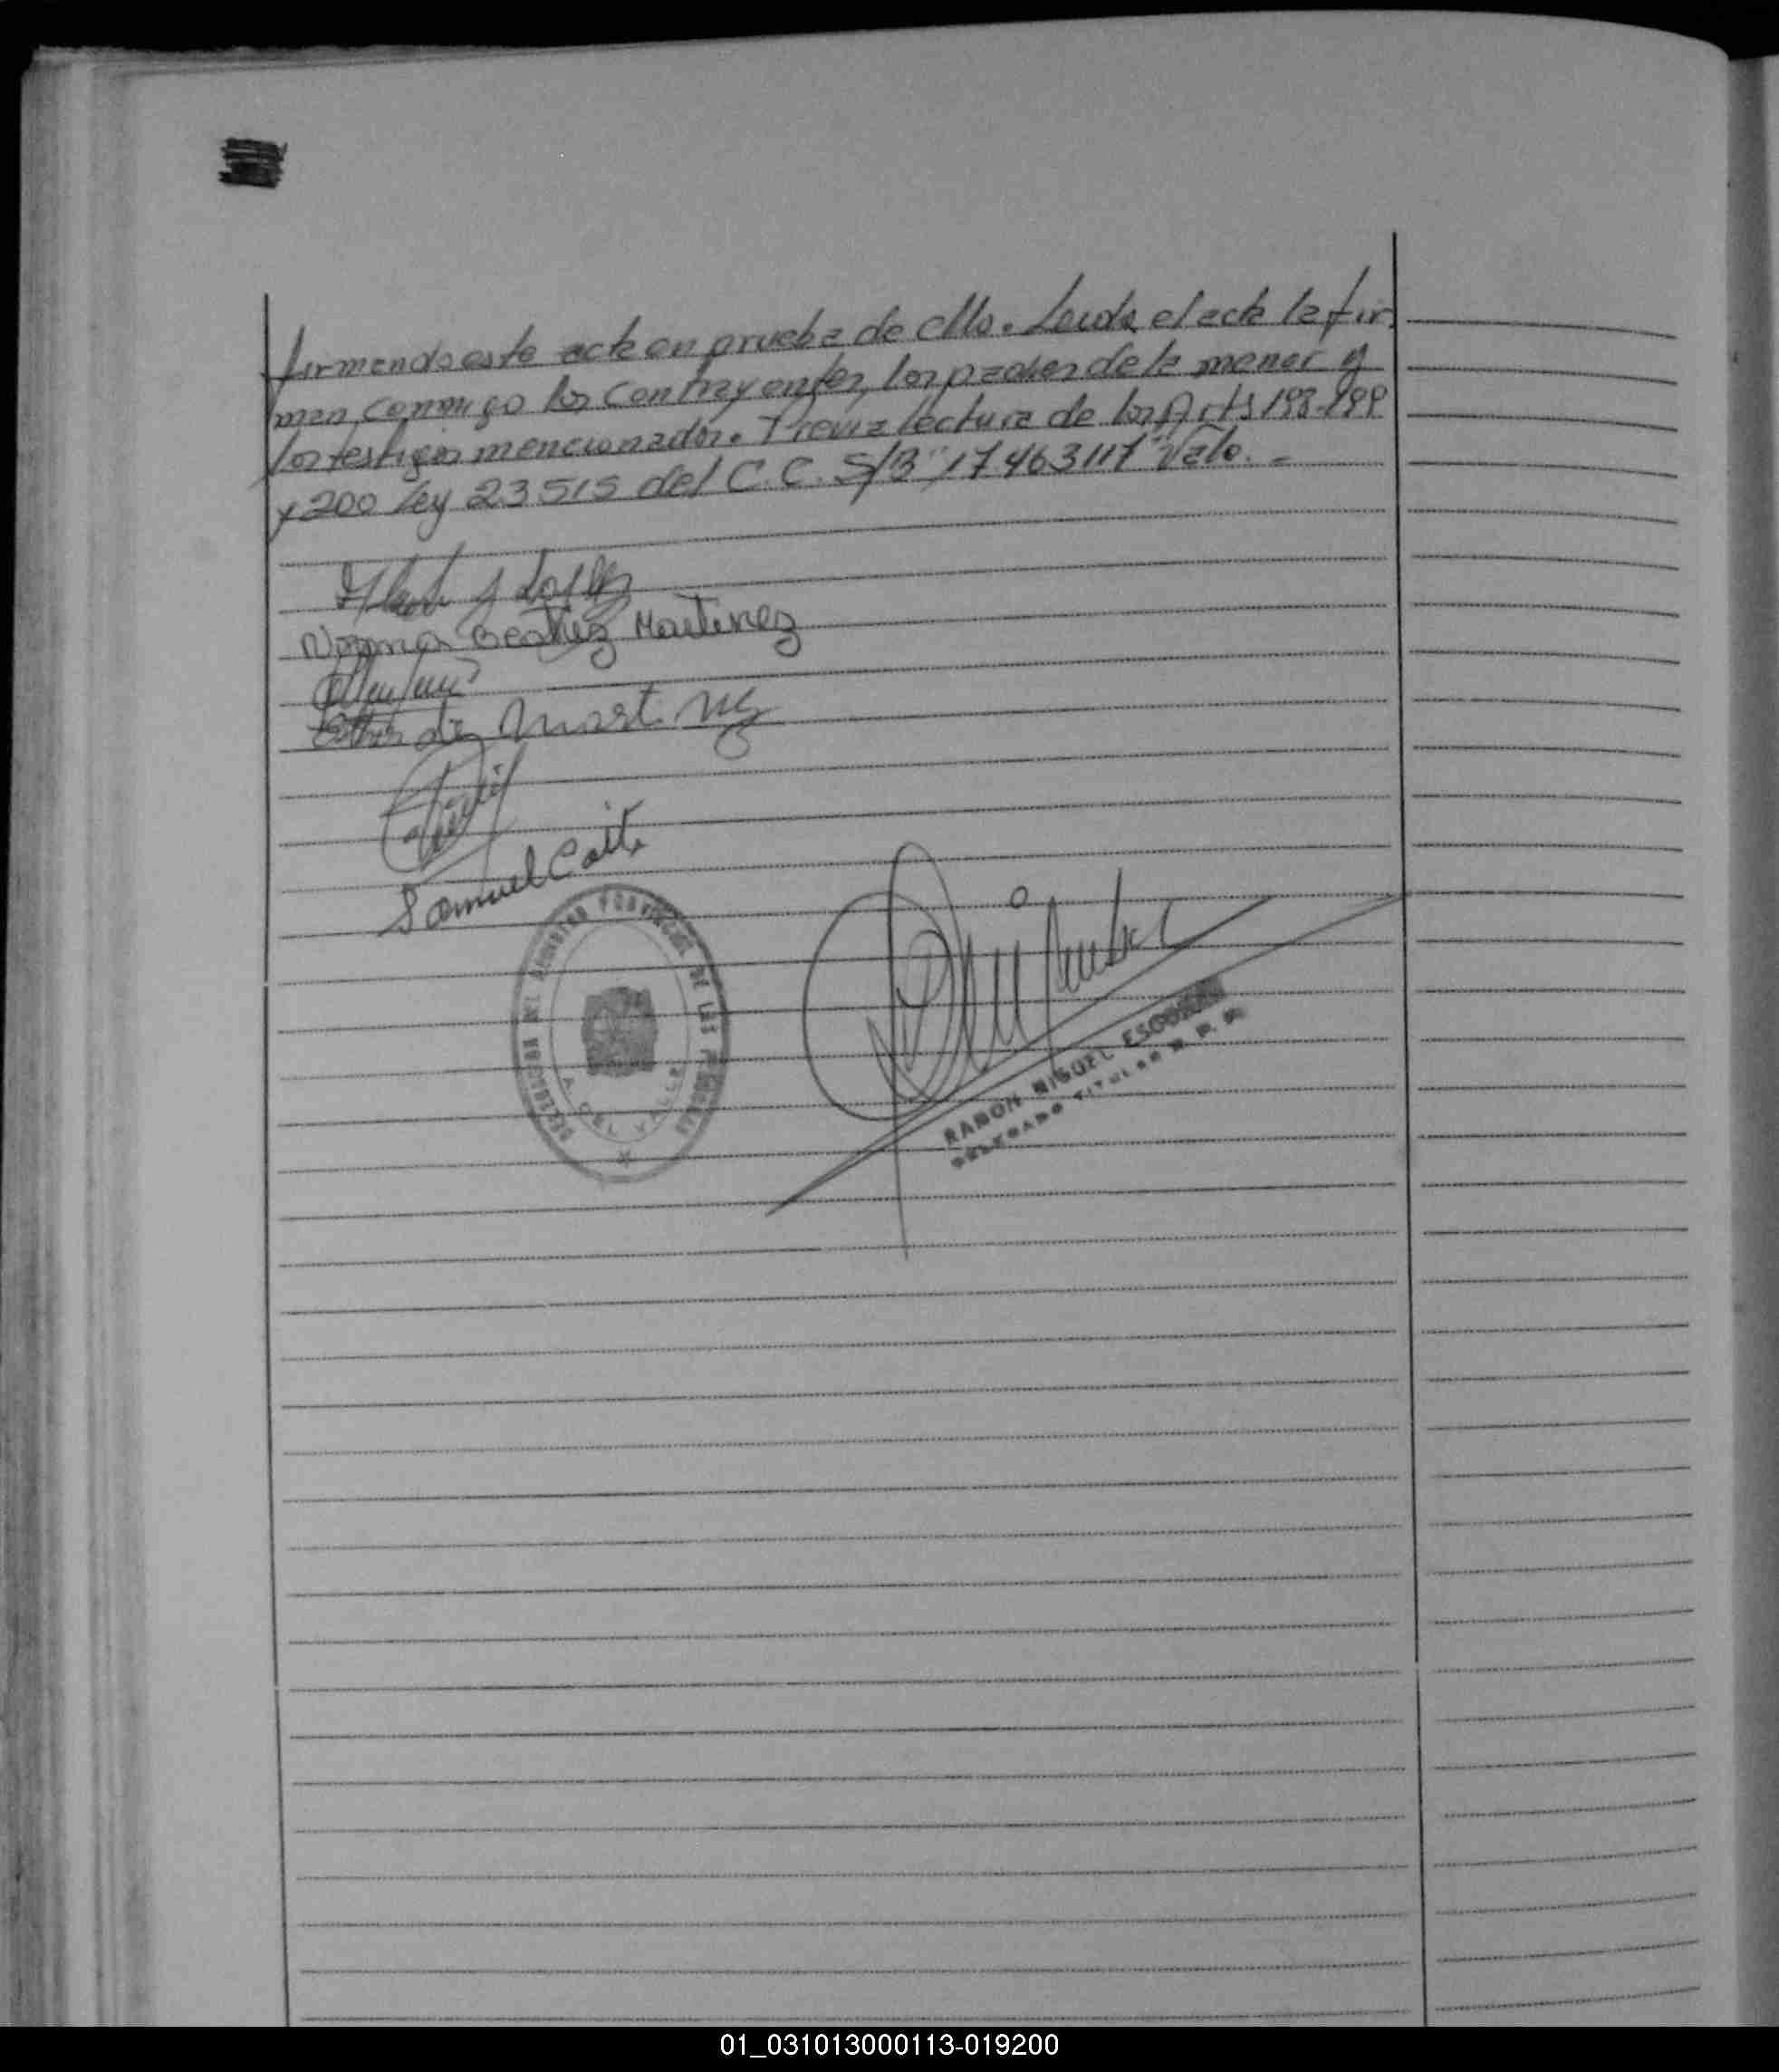 firmando este acta en prueba de ello. Leida el acta la fir
man conmigo los contrayentes, los padres de la menor y
los testigos mencionados. Previa lectura de los Arts 198-199
y 200 Ley 23515 del C.C. S/B "17.463117" Vale. =
Norma Beatriz Martinez
Esther de Martinez
Samuel
DIRECCION DEL REGISTRO PROVINCIAL DE LAS PERSONAS
RAMON MIGUEL ESCOBAR
DELEGADO TITULAR R. P. P.
01_031013000113-019200